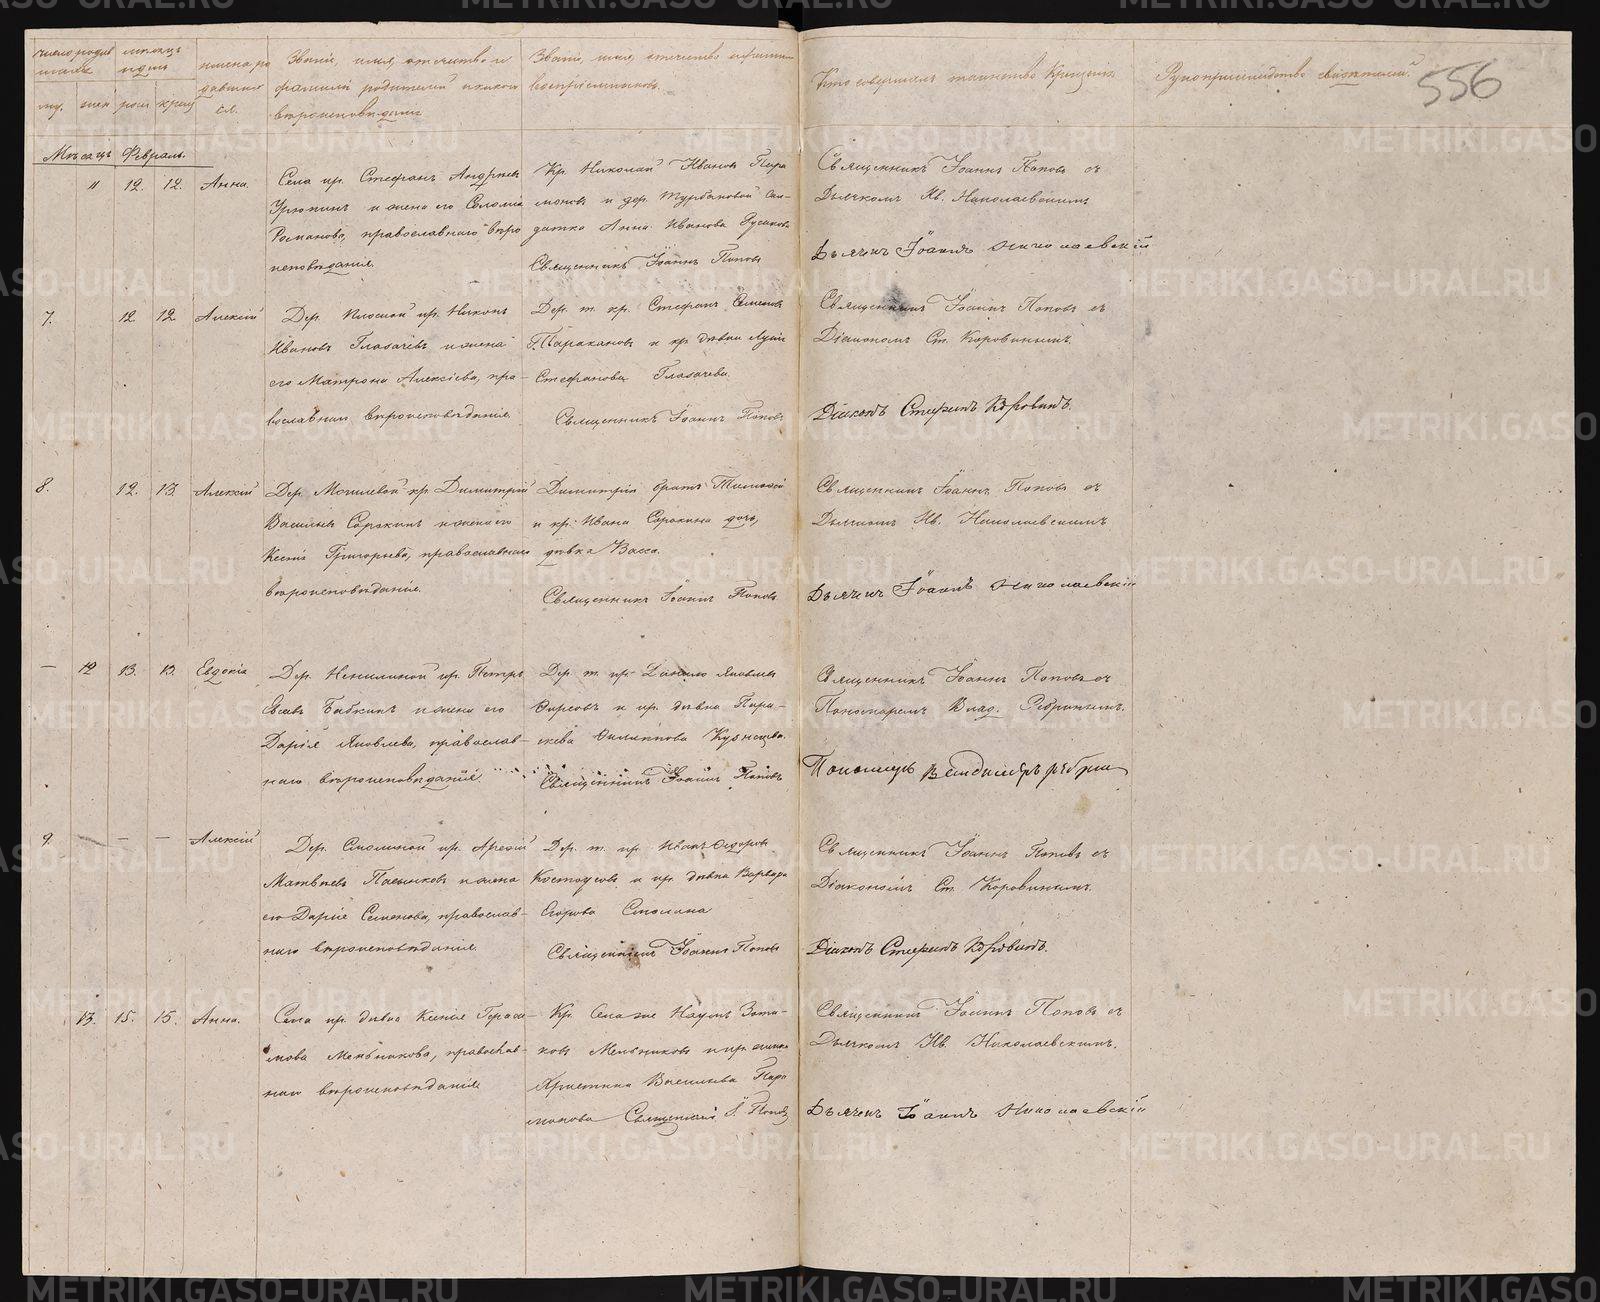 556
Число родив
шихся
Мѣсяцъ
и день
имена ро
дивших
ся.
Званіе, имя, отчество и
фамилія родителей и какого
вѣроисповѣданія
Званіе, имя, отчество и фамилія
воспріемниковъ.
Кто совершалъ таинство Крещенія
Рукоприкладство свидѣтелей.
му. жен рож крещ
Мѣсяцъ Февраль.
11 12. 12. Анна.
Села кр. Стефанъ Андреевъ
и жена его Соломія
Романова, православнаго вѣро
исповѣданія.
Кр. Николай Ивановъ Пара
моновъ и дер. Турбановой сол-
датка Анна Иванова Русакова
Священникъ Іоаннъ Поповъ
Священникъ Іоаннъ Поповъ съ
Дьячкомъ Ив. Николаевскимъ
Дьячекъ Іоаннъ Николаевскій
7. 12 12 Алексій
Дер. кр. Никонъ
Ивановъ Глазачевъ и жена
его Матрона Алексіева, пра-
вославнаго вѣроисповѣданія.
Дер. т. кр. Стефанъ Семеновъ
Тараканов и кр. дѣвка
Стефанова Глазачева.
Священникъ Іоаннъ Поповъ
Священникъ Іоаннъ Поповъ съ
Діакономъ Ст. Коровинымъ.
Діаконъ Стефанъ Коровинъ.
8. 12. 13. Алексій
Дер. Могилевой кр. Димитрій
Васильевъ Сорокинъ и жена его
Ксенія Григорьева, православнаго
вѣроисповѣданія.
Димитрія братъ Тимофей
и кр. Ивана Сорокина дочь,
дѣвка Васса.
Священникъ Іоаннъ Поповъ.
Священникъ Іоаннъ Поповъ съ
Дьячкомъ Ив. Николаевскимъ
Дьячекъ Іоаннъ Николаевскій
— 12 13. 13. Евдокія
Дер. кр. Петръ
Бабкинъ и жена его
Дарія Яковлева, православ-
наго вѣроисповѣданія.
Дер. т. кр. Данило Яковлевъ
Фирсовъ и кр. дѣвка Пара-
скева Филиппова Кузнецова.
Священникъ Іоаннъ Поповъ
Священникъ Іоаннъ Поповъ съ
Пономаремъ Влад. Ребринымъ.
Пономарь Владимеръ Ребринъ
9. — — Алексій
Дер. Смолиной кр. Арефій
Матвѣевъ Пасынковъ и жена
его Дарія Семенова, православ-
наго вѣроисповѣданія.
Дер. т. кр. Иванъ Ѳедоровъ
Костоусовъ и кр. дѣвка Варвара
Егорова Смолина
Священникъ Іоаннъ Поповъ
Священникъ Іоаннъ Поповъ съ
Діакономъ Ст. Коровинымъ.
Діаконъ Стефанъ Коровинъ.
13. 15. 15. Анна.
Села кр. дѣвка Ксенія Гераси-
мова Мельникова, православ-
наго вѣроисповѣданія
Кр. Села же Наумъ Зоти-
ковъ Мельниковъ и кр. жена
Христина Васильева Пара
монова Священникъ І. Поповъ
Священникъ Іоаннъ Поповъ съ
Дьячкомъ Ив. Николаевскимъ.
Дьячекъ Іоаннъ Николаевскій
METRIKI.GASO-URAL.RU